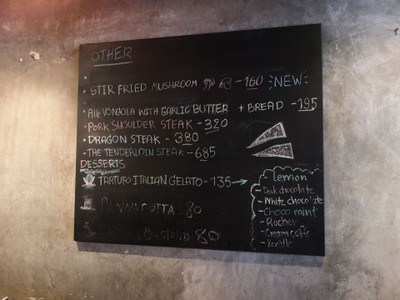 OTHER
- STIR FRIED MUSHROOM - 160 NEW
- Alle VONGOLA WITH GARLIC BUTTER + BREAD - 195
- PORK SHOULDER STEAK - 320
- DRAGON STEAK - 380
- THE TENDERLOIN STEAK - 685
DESSERTS
TARTUFO ITALIAN GELATO - 135 →
80
80
- Lemon
- Dark chocolate
- White chocolate
- Choco mint
- Rocher
- Cream caffe
- Vanille